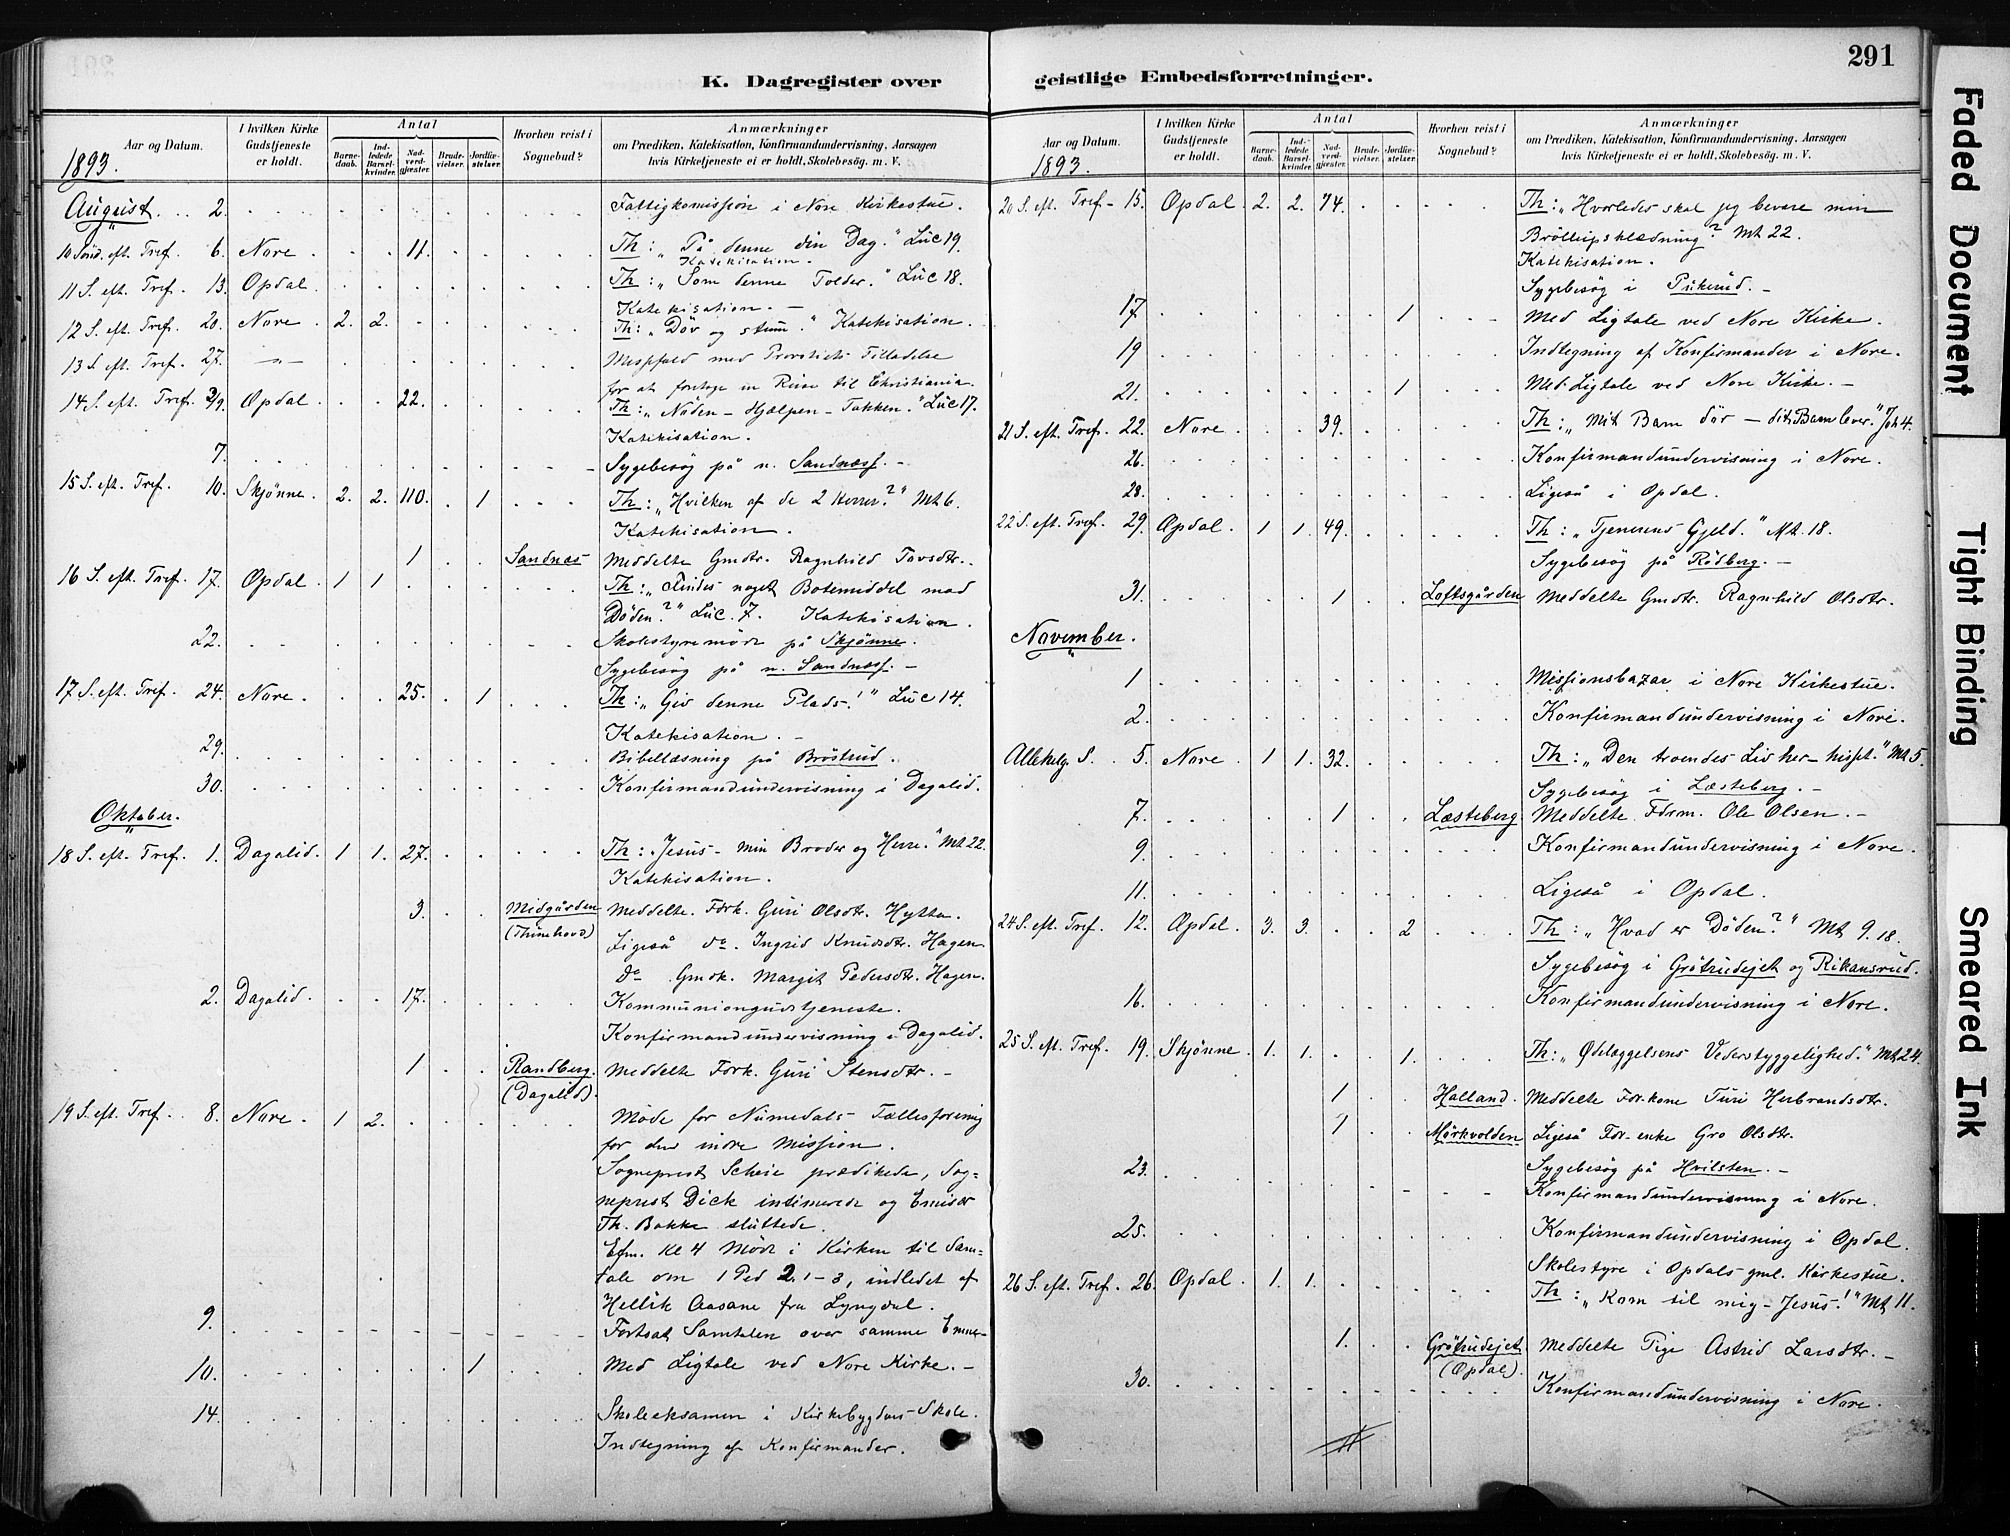 K. Dagregister over geistlige Embedsforretninger.
291
Aar og Datum.
I hvilken Kirke Gudstjeneste er holdt.
Antal
Barnedaab.
Indledede Barselkvinder.
Nadverdgjæster.
Brudevielser.
Jordfæstelser.
Hvorhen reist i Sognebud?
Anmærkninger
om Prædiken, Katekisation, Konfirmandundervisning, Aarsagen
hvis Kirketjeneste ei er holdt, Skolebesög. m. V.
1893.
August. 2. Fattigkomission i Nore Kirkestue.
10 Sönd. eft. Tref. 6. Nore 11. Th: "På denne din Dag." Luc 19.
Katekisation.
11 S. eft. Tref. 13. Opdal. Th: "Som denne Tolder." Luc 18.
Katekisation. -
12 S. eft. Tref. 20. Nore. 2. 2. Th: "Döv og stum." Katekisation.
13 S. eft. Tref. 27. -"- Messfald med Provstiets Tilladelse
for at foretage en Reise til Christiania.
14 S. eft. Tref. 3/9. Opdal. 22. Th: "Nöden - Hjælpen - Takken." Luc 17.
Katekisation.
7. Sygebesög på n. Sandnæss. -
15 S. eft. Tref. 10. Skjönne. 2. 2. 110. 1 Th: "Hvilken af de 2 Herrer?" Mt 6.
Katekisation.
1 Sandnæs Meddelte Gmdtr. Ragnhild Tovsdtr.
16 S. eft. Tref. 17. Opdal. 1 1 Th: "Findes noget Botemiddel mod
Döden?" Luc. 7. Katekisation.
22. Skolestyremöde på Skjönne.
Sygebesög på n. Sandnæss. -
17 S. eft. Tref. 24. Nore. 25. 1 Th: "Giv denne Plads!" Luc 14.
Katekisation. -
29. Bibellæsning på Bröstrud.
30. Konfirmandundervisning i Dagalid.
Oktober.
18 S. eft. Tref. 1. Dagalid. 1 1. 27. Th: "Jesus - min Broder og Herre." Mt 22.
Katekisation.
3. Midgården Meddelte Fdrk. Guri Olsdtr. Hytta.
(Thinehovd) Ligeså do. Ingrid Knudsdtr. Hagen.
do Gmdk. Margit Pedersdtr. Hagen.
2. Dagalid. 17. Kommuniongudstjeneste.
Konfirmandundervisning i Dagalid.
1 Randberg. Meddelte Fdrk. Guri Stensdtr. -
(Dagalid).
19 S. eft. Tref. 8. Nore. 1 2. Möde for Numedals Fællesforening
for den indre Mission.
Sogneprest Scheie prædikede, Sog-
neprest Dick intimerede og Emisær
Th. Bakke sluttede.
Efm. kl 4 Möde i Kirken til Sam-
tale om 1 Ped 2. 1-3, indledet af
Hellik Aasane fra Lyngdal.
9. Fortsat Samtalen over samme Emne-
10. 1 Med Ligtale ved Nore Kirke. -
14. Skoleeksamen i Kirkebygdens Skole.
Indtegning af Konfirmander.
Aar og Datum.
I hvilken Kirke Gudstjeneste er holdt.
Antal
Barnedaab.
Indledede Barselkvinder.
Nadverdgjæster.
Brudevielser.
Jordfæstelser.
Hvorhen reist i Sognebud?
Anmærkninger
om Prædiken, Katekisation, Konfirmandundervisning, Aarsagen
hvis Kirketjeneste ei er holdt, Skolebesög. m. V.
1893.
20 S. eft. Tref. 15. Opdal 2. 2. 74. Th: "Hvorledes skal jeg bevare min
Bröllupsklædning? Mt 22.
Katekisation.
Sygebesög i Pukerud. -
17. 1 Med Ligtale ved Nore Kirke.
19 Indtegning af Konfirmander i Nore.
21. 1 Med Ligtale ved Nore Kirke. -
21 S. eft. Tref. 22. Nore. 39. Th: "Mit Barn dör - dit Barn lever." Joh 4.
26. Konfirmandundervisning i Nore.
28. Ligeså i Opdal.
22 S. eft. Tref. 29. Opdal. 1 1. 49. Th: "Tjenerens Gjeld." Mt. 18.
Sygebesög på Rödberg. -
31. 1 Loftsgården Meddelte Gmdtr. Ragnhild Olsdtr.
November.
1 Missionsbazar i Nore Kirkestue.
2. Konfirmandundervisning i Nore.
Allehelg. S. 5. Nore. 1 1. 32. Th: "Den troendes Liv her - hisset." Mt 5.
Sygebesög i Læsteberg. -
7. 1 Læsteberg Meddelte Fdrm. Ole Olsen. -
9. Konfirmandundervisning i Nore.
11. Ligeså i Opdal.
24 S. eft. Tref. 12. Opdal. 3. 3. 2 Th: "Hvad er Döden?" Mt 9. 18.
Sygebesög i Grötrudejet og Rikansrud.
16. Konfirmandundervisning i Nore.
25 S. eft. Tref. 19. Skjönne. 1. 1. 1. Th: "Ödelæggelsens Vederstyggelighed." Mt. 24.
1 Halland. Meddelte Fdr.kone Turi Herbrandsdtr.
1 Mörkvolden Ligeså Fdr-enke Gro Olsdtr.
Sygebesög på Hvilsten. -
23. Konfirmandundervisning i Nore.
25. Konfirmandundervisning i Opdal.
Skolestyre i Opdals gml. Kirkestue.
26 S. eft. Tref. 26. Opdal. 1. 1. Th: "Kom til mig - Jesus!" Mt 11.
1. Grötrudejet Meddelte Pige Astrid Larsdtr. -
(Opdal)
30. Konfirmandundervisning i Nore.
Faded Document
Tight Binding
Smeared Ink